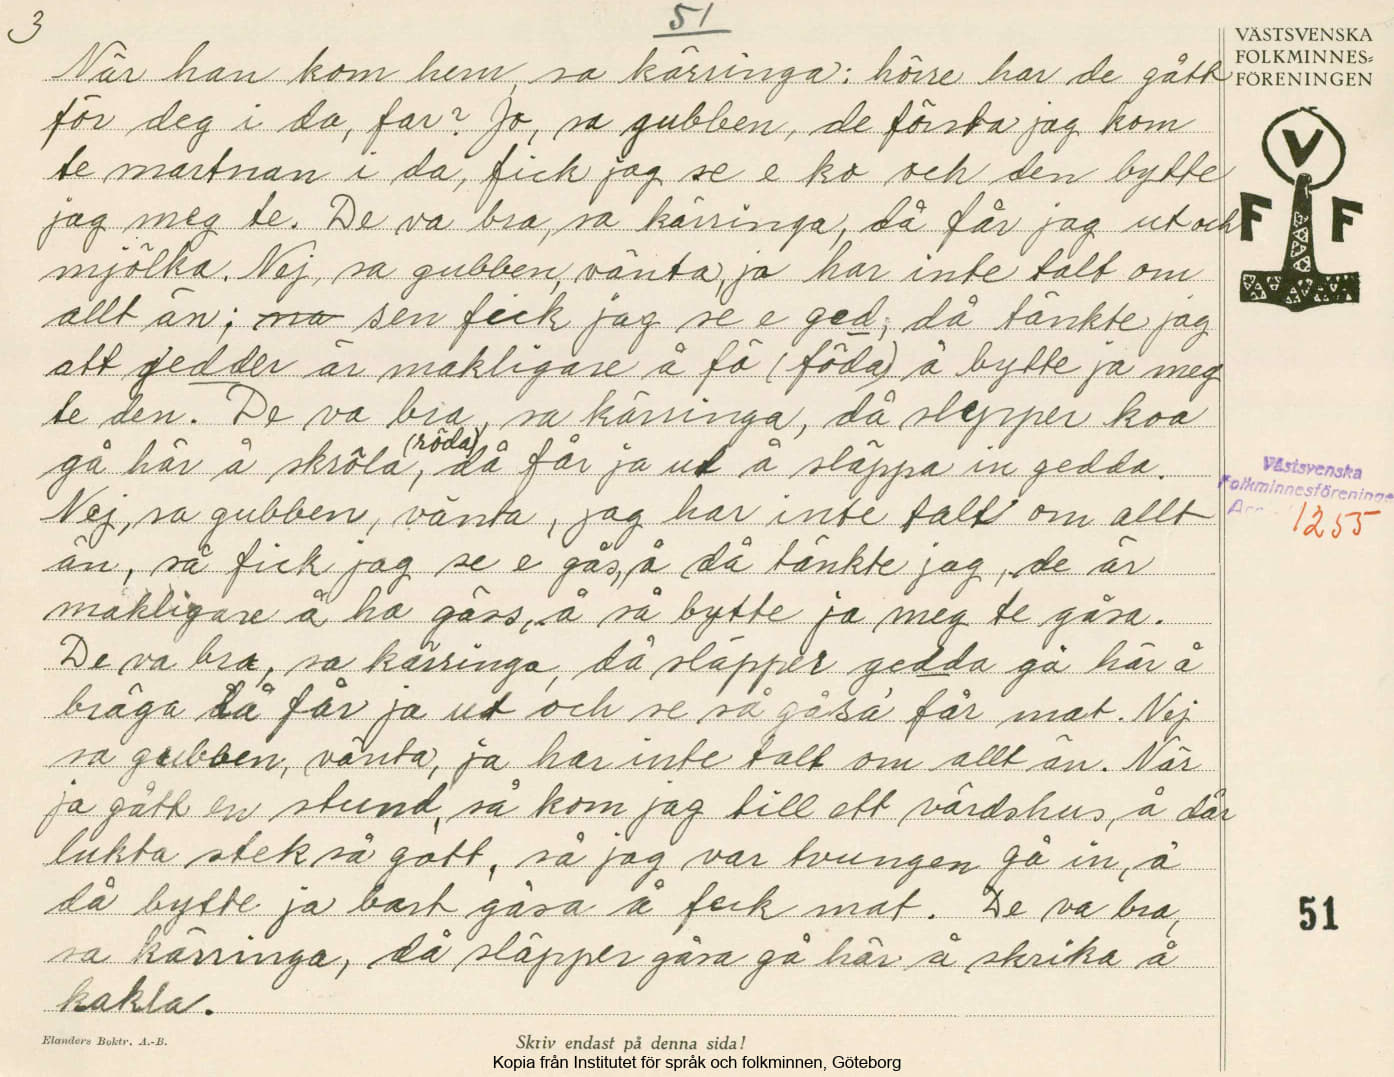 3
51
När han kom hem, sa käringa: hörre har de gått
för deg i da, far? Jo, sa gubben, de första jag kom
te martnan i da, fick jag se e ko och den bytte
jag meg te. De va bra, sa käringa, då får jag ut och
mjölka. Nej, sa gubben, vänta, ja har inte talt om
allt än; sen feck jag se e ged, då tänkte jag
att gedder är makligare å fö (föda) å bytte ja meg
te den. De va bra, sa käringa, då slepper koa
gå här å skröla (röda), då får ja ut å släppa in gedda.
Nej, sa gubben, vänta, jag har inte talt om allt
än, så fick jag se e gås, å då tänkte jag, de är
makligare å ha gäss, å så bytte ja meg te gåsa.
De va bra, sa käringa, då släpper gedda gå här å
bräga då får ja ut och se så gåsa får mat. Nej
sa gubben, vänta, ja har inte talt om allt än. När
ja gått en stund, så kom jag till ett värdshus, å där
lukta stek så gott, så jag var tvungen gå in, å
då bytte ja bort gåsa å feck mat. De va bra,
sa käringa, då släpper gåsa gå här å skrika å
kakla.
VÄSTSVENSKA
FOLKMINNES=
FÖRENINGEN
V
F F
Västsvenska
Folkminnesföreninge
1255
51
Elanders Boktr. A.-B.
Skriv endast på denna sida!
Kopia från Institutet för språk och folkminnen, Göteborg